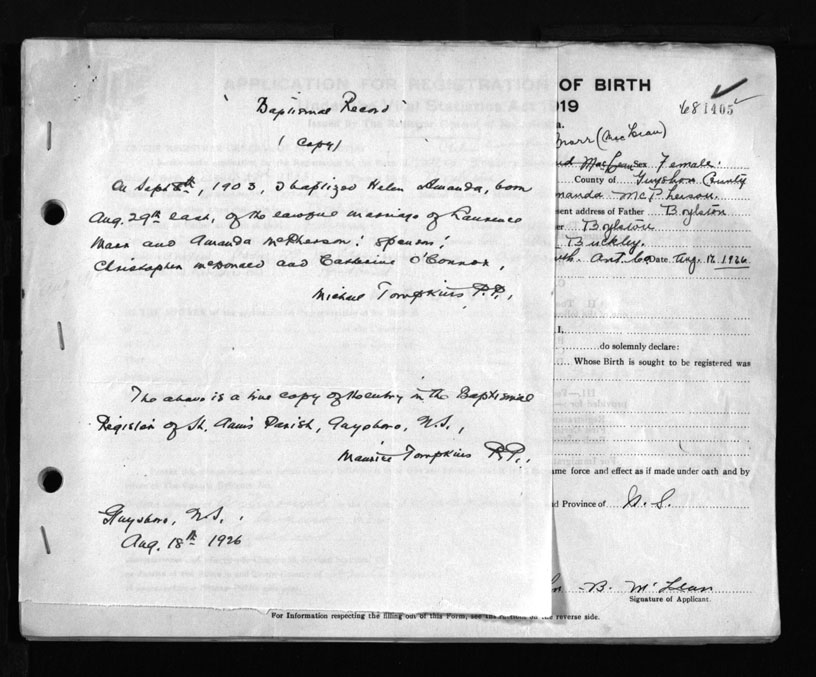 Baptismal Record
(Copy)
On Sept 8th, 1903, I baptized Helen Amanda, born
Aug. 29th each, of the lawful marriage of Laurence
Marr and Amanda McPherson: Sponsors:
Christopher McDonald and Catherine O'Connor,
Michael Tompkins P.P.,
The above is a true copy of the entry in the Baptismal
Register of St. Ann's Parish, Guysboro, N.S.,
Maurice Tompkins P.P.,
Guysboro, N.S.,
Aug. 18th 1926
APPLICATION FOR REGISTRATION OF BIRTH
1919
681405
Marr (McLean)
MacLean Sex Female
County of Guysboro County
Amanda McPherson
present address of Father Boylston
Boylston
Buckley
Ant. Co Date Aug. 17. 1926
I.
do solemnly declare:
Whose Birth is sought to be registered was
same force and effect as if made under oath and by
and Province of N.S.
B. McLean
Signature of Applicant.
For Information respecting the filling out of this Form, see instructions on the reverse side.